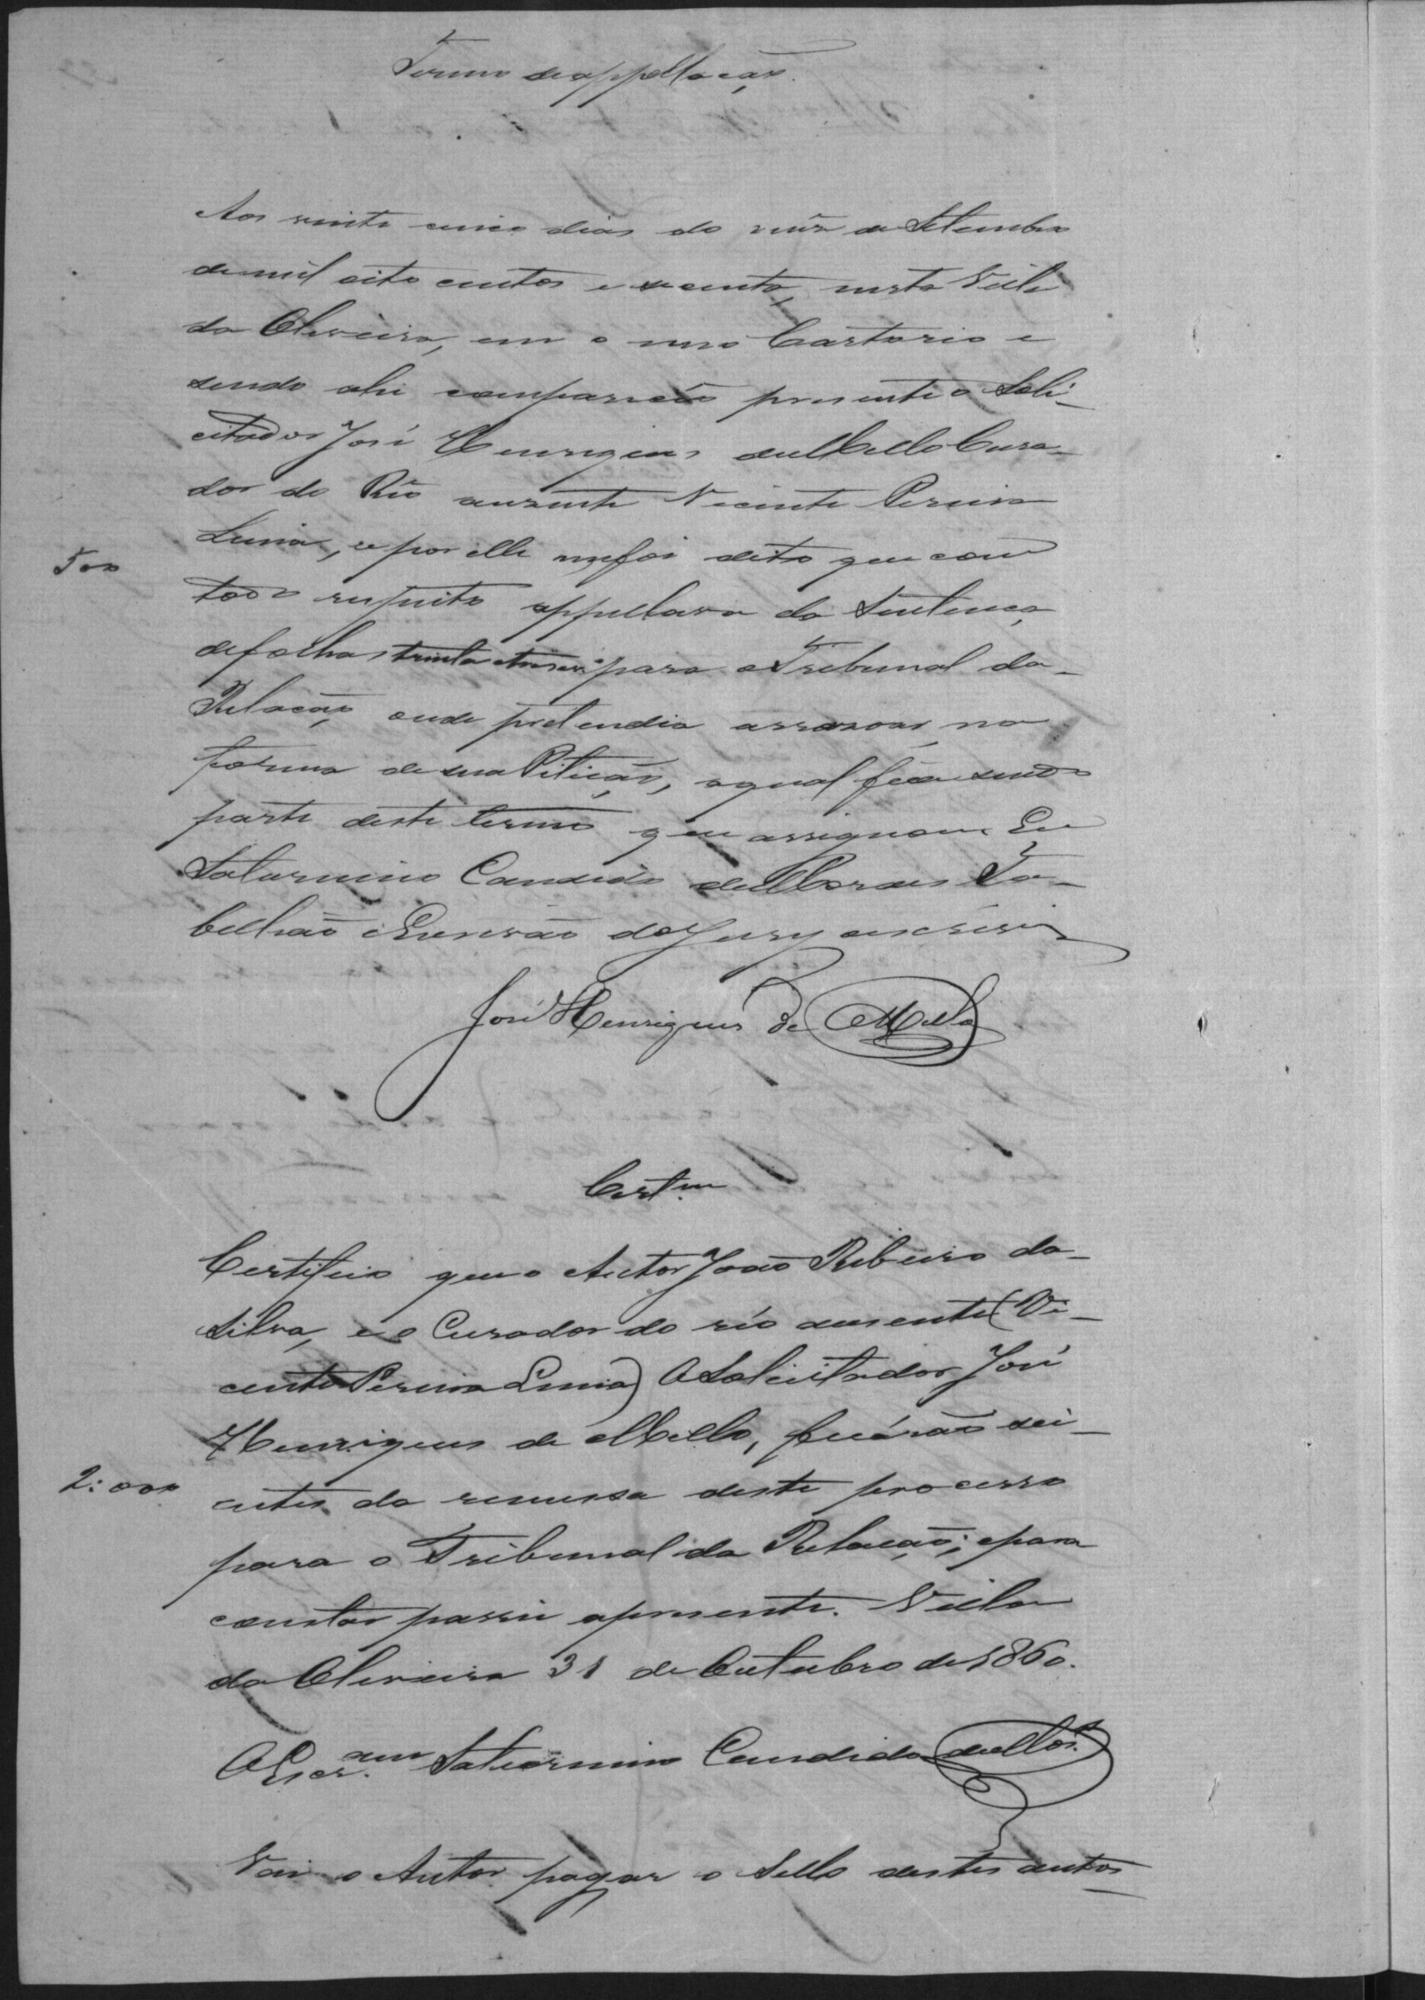 Termo de appellação.
Aos vinte cinco dias do mêz de Setembro
de mil oito centos e secenta, nesta Villa
da Oliveira, em o meo Cartorio e
sendo ahi compareceo presente o Soli-
citador José Henriques de Mello Cura-
dor do Réo auzente Vicente Pereira
Lima, e por elle me foi dito que com
500
todo respeito appellava da Sentença
de folhas trinta e tres v. para o Tribunal da
Relação onde pretendia arrazoar, na
forma de sua Petição, a qual fica sendo
parte deste termo que assignou. Eu
Saturnino Candido de Moraes Ta-
bellião e Escrivão do Jury o escrevi
José Henriques de Mello
Cert.am
Certifico que o Autor João Ribeiro da
Silva, e o Curador do réo ausente (Vi-
cente Pereira Lima) O Solicitador José
Henriques de Mello, ficárão sci-
2:000
entes da remessa deste processo
para o Tribunal da Relação; e para
constar passei a presente. Villa
da Oliveira 31 de Outubro de 1860.
O Escr.am Saturnino Candido de Mor.
Vai o Autor pagar o Sello destes autos